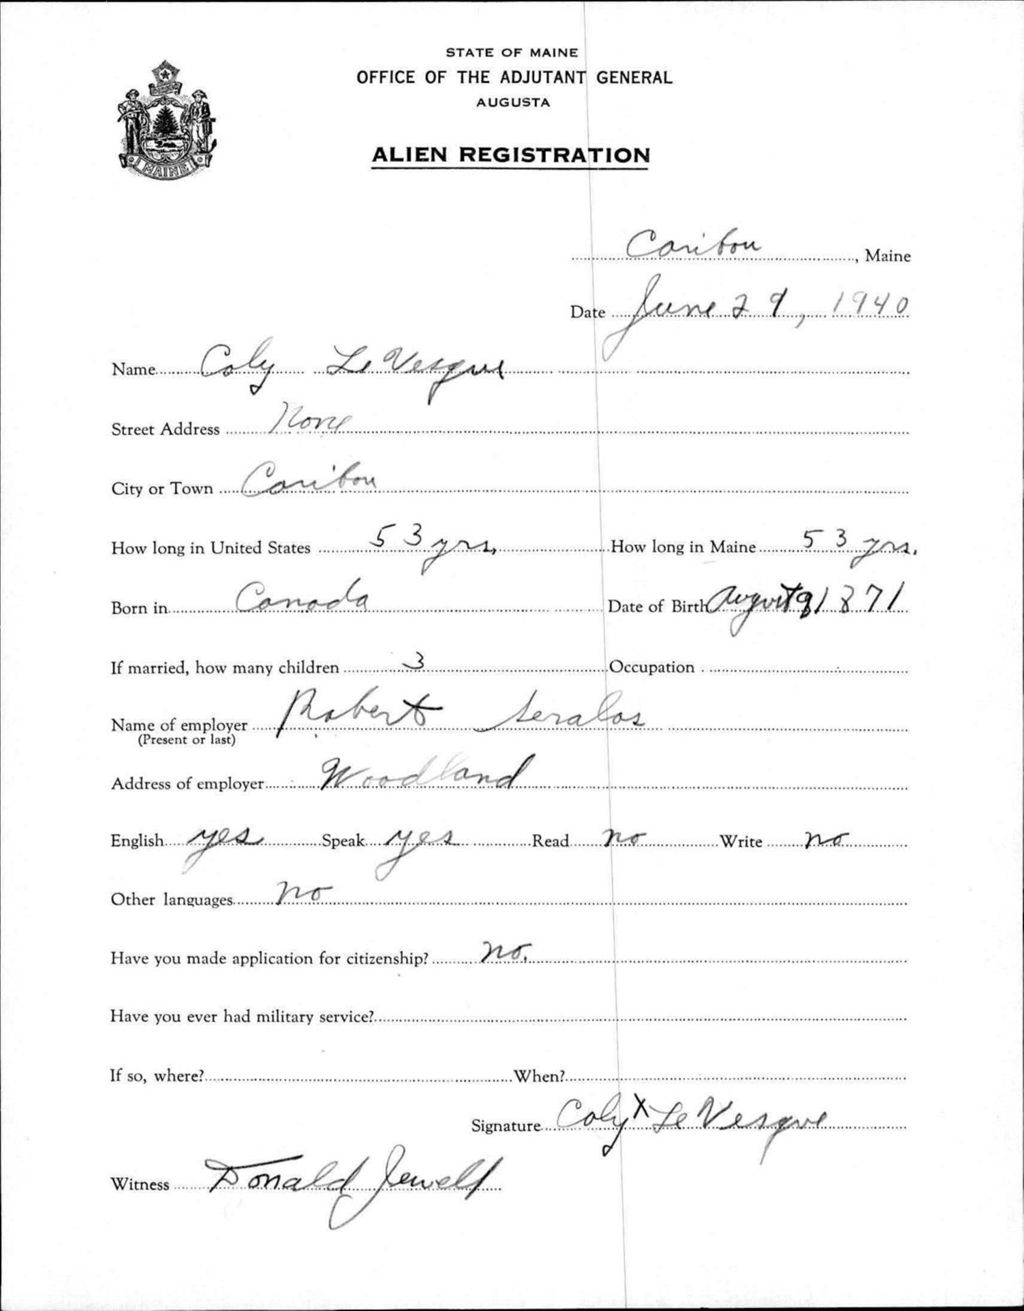 STATE OF MAINE
OFFICE OF THE ADJUTANT GENERAL
AUGUSTA
ALIEN REGISTRATION
MAINE
Caribou, Maine
Date June 29, 1940
Name Coly LeVesque
Street Address None
City or Town Caribou
How long in United States 53 yrs. How long in Maine 53 yrs.
Born in Canada Date of Birth August 9 1871
If married, how many children 3 Occupation
Name of employer Robert
(Present or last)
Address of employer Woodland
English yes Speak yes Read no Write no
Other languages no
Have you made application for citizenship? no.
Have you ever had military service?
If so, where? When?
Signature Coly X LeVesque
Witness Donald Jewell